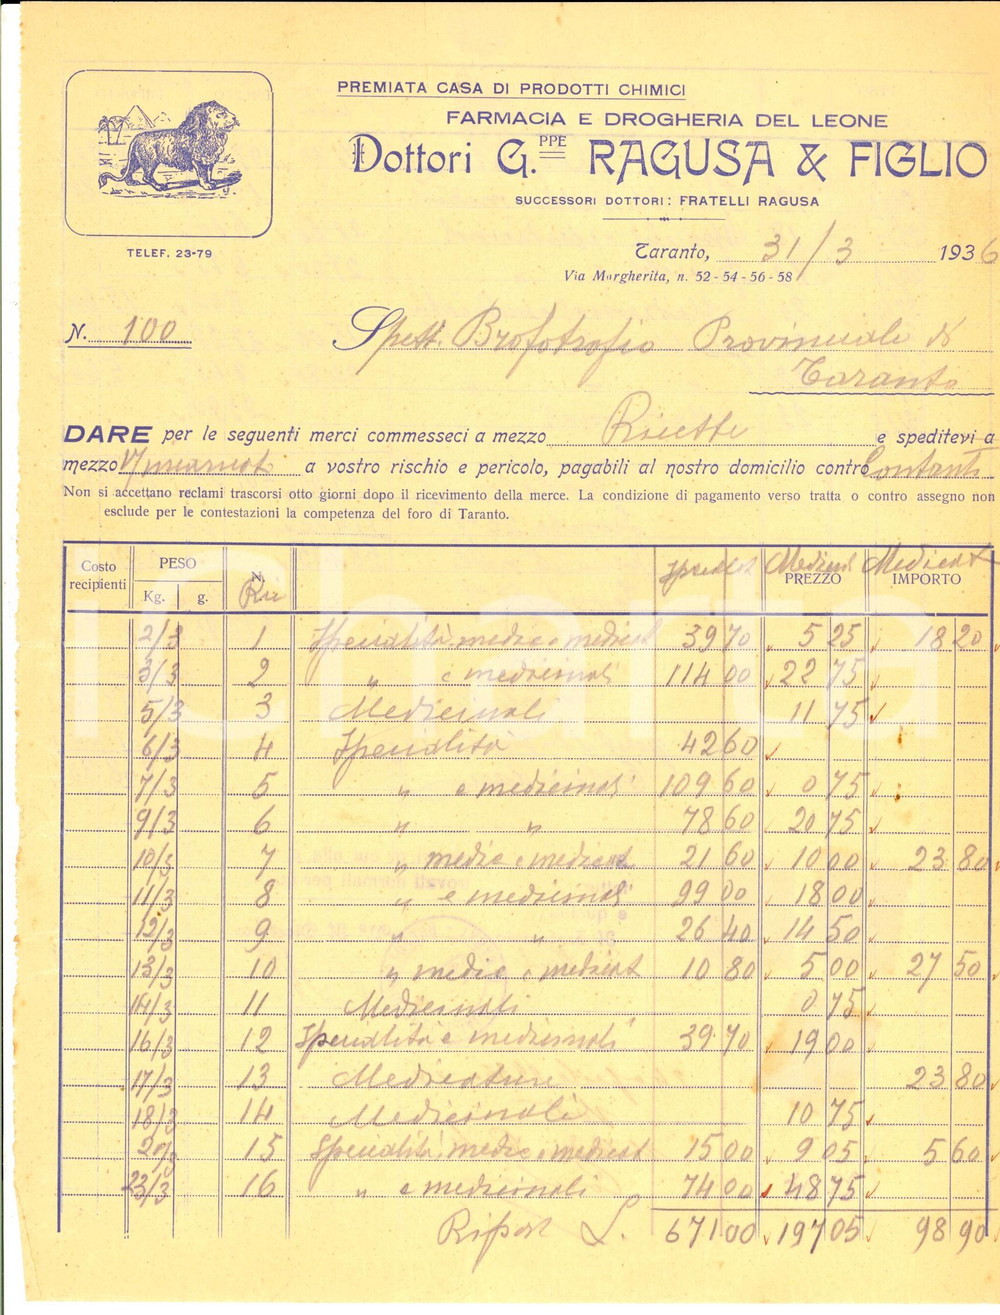 PREMIATA CASA DI PRODOTTI CHIMICI
FARMACIA E DROGHERIA DEL LEONE
Dottori G.PPE RAGUSA & FIGLIO
SUCCESSORI DOTTORI: FRATELLI RAGUSA
TELEF. 23-79
Taranto, 31/3 1936
Via Margherita, n. 52 - 54 - 56 - 58
N. 100
Spett. Brefotrofio Provinciale di
Taranto
DARE per le seguenti merci commesseci a mezzo Ricette e speditevi a
mezzo a vostro rischio e pericolo, pagabili al nostro domicilio contro Contanti
Non si accettano reclami trascorsi otto giorni dopo il ricevimento della merce. La condizione di pagamento verso tratta o contro assegno non
esclude per le contestazioni la competenza del foro di Taranto.
Costo recipienti PESO Kg. g. N. Ric Specialit Medicinali PREZZO Medicat IMPORTO
2/3 1 Specialità medic e medicat 39 70 5 25 18 20
3/3 2 " e medicinali 114 00 22 75
5/3 3 Medicinali 11 75
6/3 4 Specialità 42 60
7/3 5 " e medicinali 109 60 0 75
9/3 6 " " 78 60 20 75
10/3 7 " medic e medicat 21 60 10 00 23 80
11/3 8 " e medicinali 99 00 18 00
12/3 9 " " 26 40 14 50
13/3 10 " medic e medicat 10 80 5 00 27 50
14/3 11 Medicinali 0 75
16/3 12 Specialità e medicinali 39 70 19 00
17/3 13 Medicature 23 80
18/3 14 Medicinali 10 75
20/3 15 Specialità medic e medicat 15 00 9 05 5 60
23/3 16 " e medicinali 74 00 48 75
Riport L. 671 00 197 05 98 90
iCharta